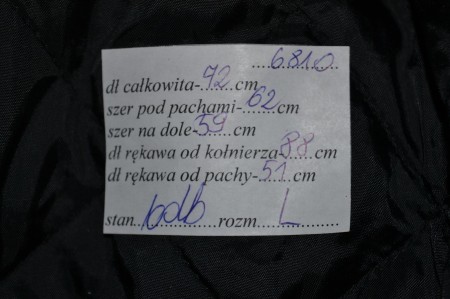 6810
dł całkowita-72cm
szer pod pachami-62cm
szer na dole-59cm
dł rękawa od kołnierza-88cm
dł rękawa od pachy-51cm
stan bdb rozm L